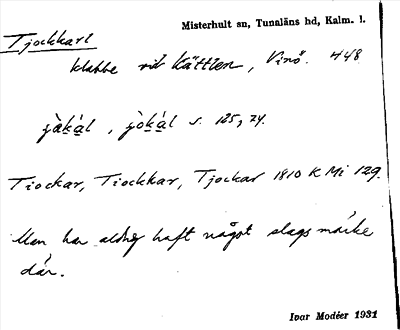 Misterhult sn, Tunaläns hd, Kalm. l.
Tjockkarl
klabbe vid Kättlen, Vinö. 448
jàkál, jòkál s. 125, 24.
Tiockar, Tiockkar, Tjockar 1810 K Mi 129.
Man har aldrig haft något slags märke
där.
Ivar Modéer 1931